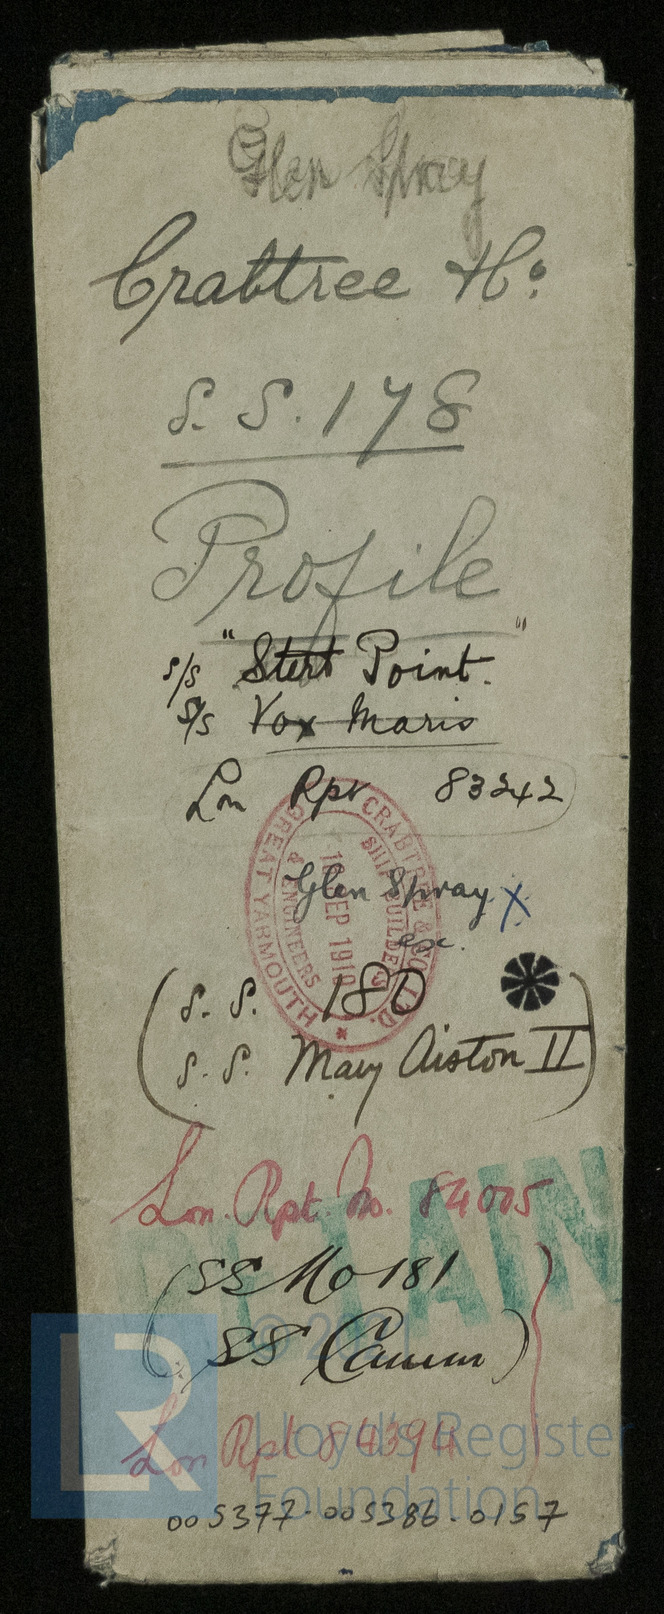 Glen Spray
Crabtree Ho
S.S. 178
Profile
s/s "Stert Point."
S/s Vox Maris
Lon Rpt 83242
CRABTREE & CO. LTD.
SHIPBUILDERS
& ENGINEERS
GREAT YARMOUTH
SEP 191
Glen Spray X
ex.
(S.S. 180
S.S. Mary Aiston II)
Lon. Rpt. No. 84005
RETAIN
(SS No 181
SS Camm)
Lon Rpt 84394
© 20
LR
Lloyd's Register
Foundation
005377-005386-0157